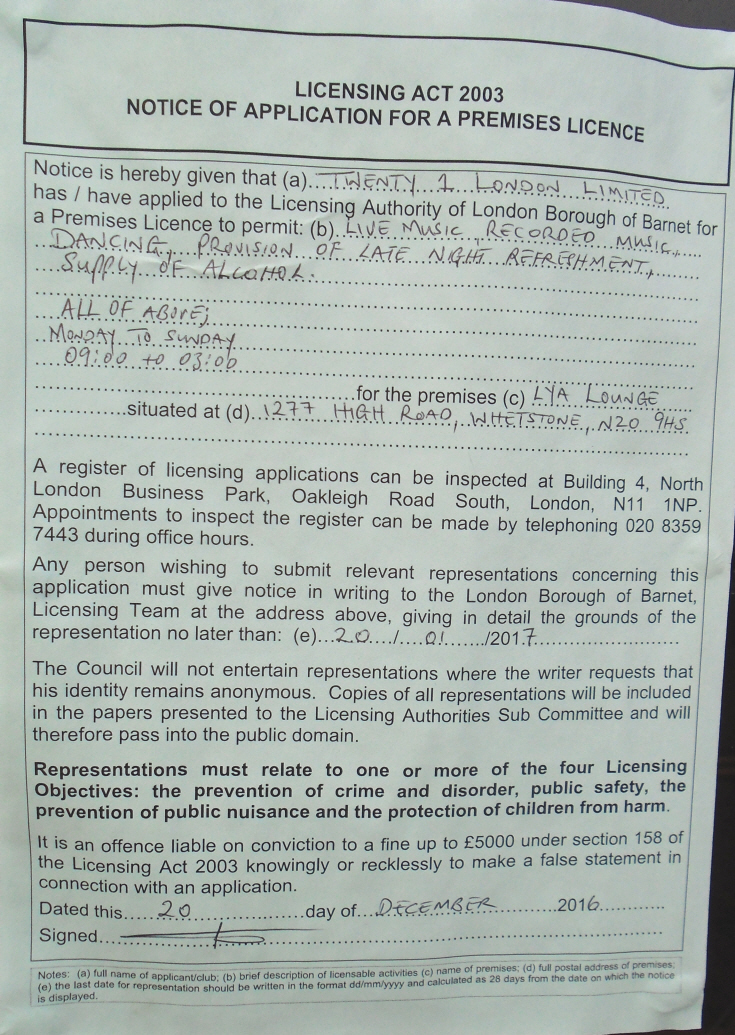 LICENSING ACT 2003
NOTICE OF APPLICATION FOR A PREMISES LICENCE
Notice is hereby given that (a)....TWENTY 1 LONDON LIMITED.
has / have applied to the Licensing Authority of London Borough of Barnet for
a Premises Licence to permit: (b). LIVE MUSIC RECORDED MUSIC,
DANCING, PROVISION OF LATE NIGHT REFRESHMENT,
SUPPLY OF ALCOHOL.
ALL OF ABOVE;
MONDAY TO SUNDAY
09:00 to 03:00
for the premises (c) LYA LOUNGE
situated at (d). 1277 HIGH ROAD, WHETSTONE, N20 9HS.
A register of licensing applications can be inspected at Building 4, North
London Business Park, Oakleigh Road South, London, N11 1NP.
Appointments to inspect the register can be made by telephoning 020 8359
7443 during office hours.
Any person wishing to submit relevant representations concerning this
application must give notice in writing to the London Borough of Barnet,
Licensing Team at the address above, giving in detail the grounds of the
representation no later than: (e)...20..../....01....../2017
The Council will not entertain representations where the writer requests that
his identity remains anonymous. Copies of all representations will be included
in the papers presented to the Licensing Authorities Sub Committee and will
therefore pass into the public domain.
Representations must relate to one or more of the four Licensing
Objectives: the prevention of crime and disorder, public safety, the
prevention of public nuisance and the protection of children from harm.
It is an offence liable on conviction to a fine up to £5000 under section 158 of
the Licensing Act 2003 knowingly or recklessly to make a false statement in
connection with an application.
Dated this.....20....................day of...DECEMBER...........2016............
Signed
Notes: (a) full name of applicant/club; (b) brief description of licensable activities (c) name of premises; (d) full postal address of premises;
(e) the last date for representation should be written in the format dd/mm/yyyy and calculated as 28 days from the date on which the notice
is displayed.